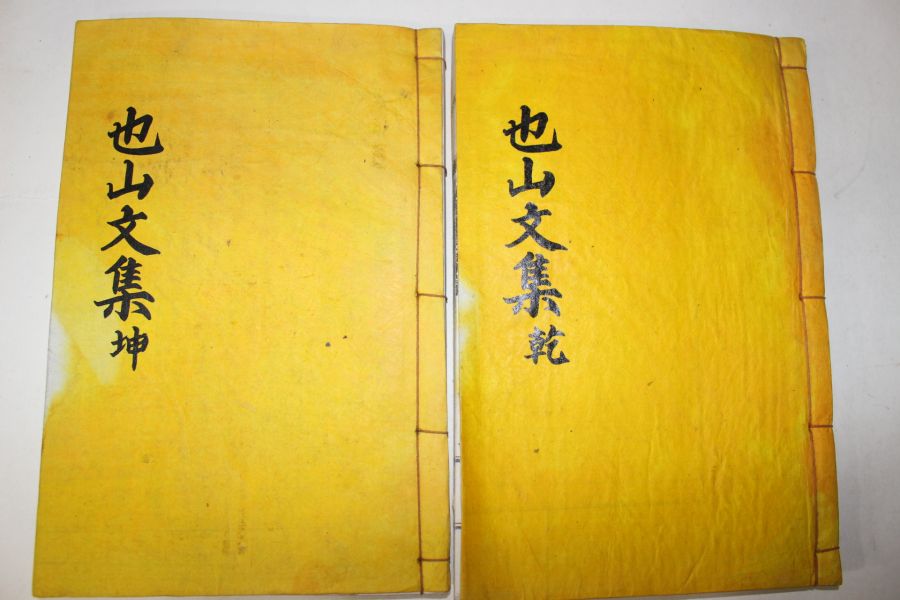 也山文集 乾
也山文集 坤